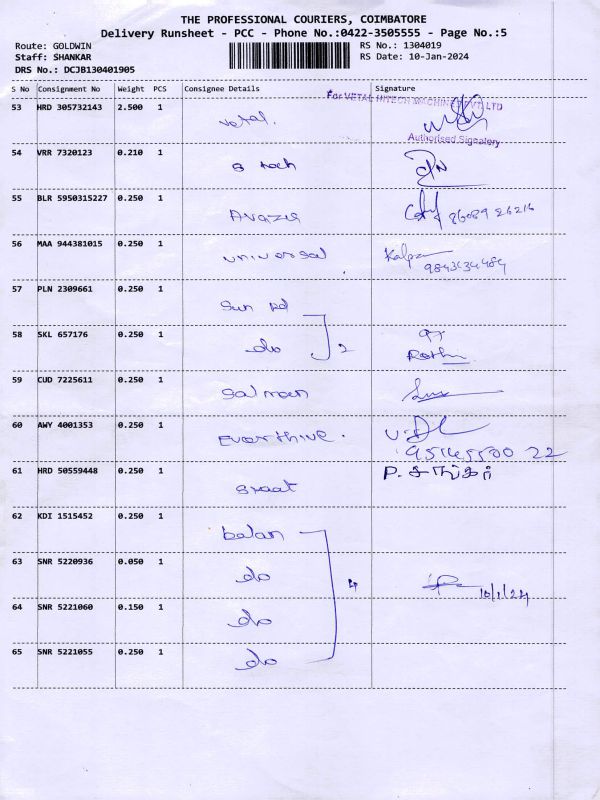 THE PROFESSIONAL COURIERS, COIMBATORE
Delivery Runsheet - PCC - Phone No.:0422-3505555 - Page No.:5
Route: GOLDWIN
Staff: SHANKAR
DRS No.: DCJB130401905
RS No.: 1304019
RS Date: 10-Jan-2024
S No Consignment No Weight PCS Consignee Details Signature
For VETAL HITECH MACHINES PVT. LTD
53 HRD 305732143 2.500 1 Vetal.
Authorised Signatory
54 VRR 7320123 0.210 1
55 BLR 5950315227 0.250 1 86089 26216
56 MAA 944381015 0.250 1 Universal Kalpa
57 PLN 2309661 0.250 1 Sun Rd
58 SKL 657176 0.250 1 do 2
59 CUD 7225611 0.250 1 Salman
60 AWY 4001353 0.250 1 Everthive.
61 HRD 50559448 0.250 1
62 KDI 1515452 0.250 1 balan
63 SNR 5220936 0.050 1 do 10/1/24
64 SNR 5221060 0.150 1 do
65 SNR 5221055 0.250 1 do